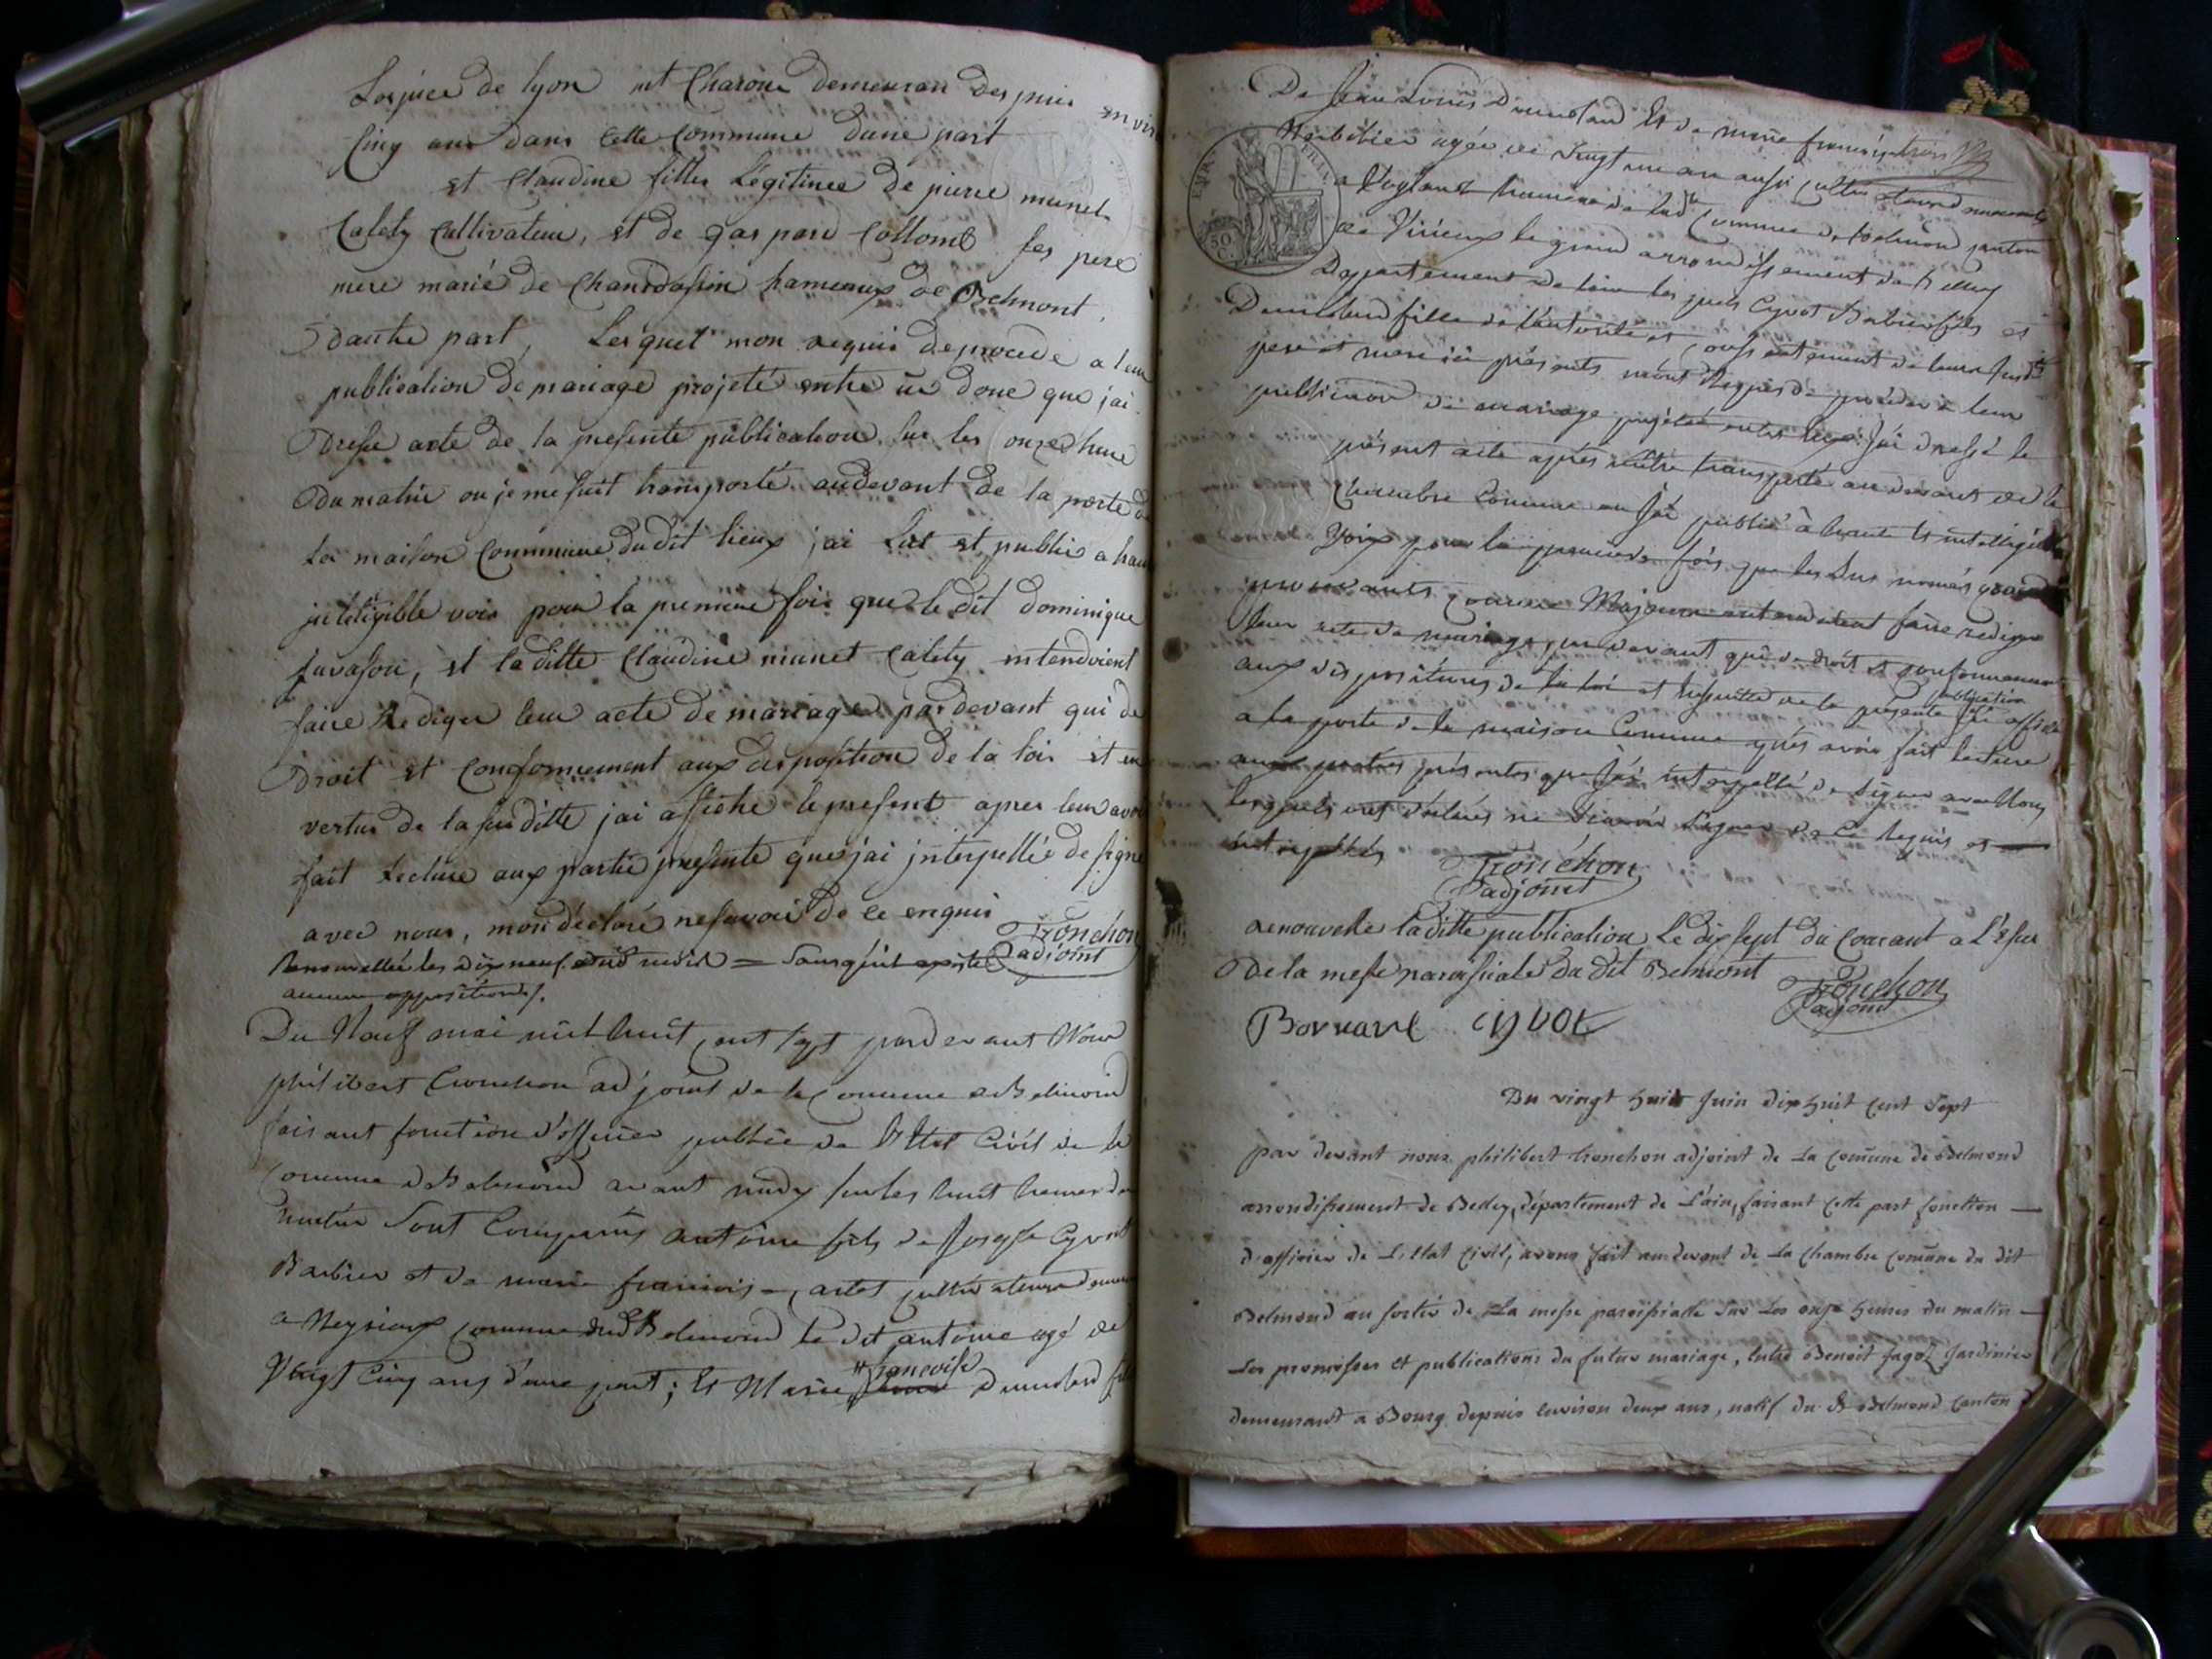 de lyon et Charon demeuran des puis environ
Cinq ans dans cette Commune dune part
et Claudine fille Légitimee de pierre munet
Calety Cultivateur, et de gaspard Collomb ses pere
mere marié de hameaux de Belmont,
dautre part, Lesquel mon requis de procede a leur
publication de mariage projeté entre donc que jai
Dresse acte de la presente publication sur les onze heure
Du matin ou je me suit transporté audevant de la porte de
La maison Commune du dit lieux jai Lut et publie a haut
jnteligible voix pour la premiere fois que le dit dominique
juvason, et laditte Claudine munet Calety intendoient
faire Rediger leur acte de mariage pardevant qui de
Droit et Conformement aux disposition de la loi et en
vertus de la susditte jai affiche le present apres leur avoir
fait Lecture aux partie presente que jai jnterpellée de signe
avec nous, mon déclaré ne savoir de ce enquis
Tronchon
adjoint
Renouvellée les dix neuf avril = Sans quil existe
aucune opposition
Du Neuf mai mil huit cent sept pardevant Nous
philibert tronchon adjoint de la Comune de Belmond
faisant fonction d'officier public de l'Etat Civil de la
Comune de Belmond avant midy sur les huit heures du
matin Sont Comparus antoine fils de Joseph Cyvot
Barbier et de marie francoise cultivateurs
a Neyrieux comune dud Belmond le dit antoine agé de
Vingt Cinq ans d'une part; Et Marie francoise Dumoland
De Jean Louis Dumoland Et de marie francoise
Barbier agée de Vingt un an aussi cultivateurs
a Vogland hameau de lad.te Commune de Belmond canton
de Virieux le grand arrondissement de Belley
Departement de lain les quels Cyvot Barbier fils et
Dumoland fille de l'autorité et consentement de leurs susd.ts
pere et mere ici présents mont Requis de procéder a leur
publication de mariage projetée entre Eux; Jai dressé le
présent acte après m'être transporté au devant de la
Chambre Comune ou Jai publié à haute Et intelligible
Voix pour la premiere fois que les dus només
comme Majeurs entendoient faire rediger
leur acte de mariage par devant qui de droit et conformement
aux dispositions de la loi et ensuitte de la presente publication Jai affiché
a la porte de la maison Comune après avoir fait lecture
aux parties présentes que Jai interpellé de signer avec Nous
lesquels ont déclarés ne Scavoir Signer de ce Requis et
interpellés
Tronchon
adjoint
renouvelle laditte publication Le dix sept du Courant a L'Issue
De la messe paroissiale du dit Belmont
Tronchon
adjoint
Bornarel cyvot
Du vingt huit Juin dix huit cent Sept
par devant nous philibert tronchon adjoint de La Comune de Belmond
arrondissement de Belley, département de L'ain, faisant Cette part fonction
d'officier de L'Etat Civil, avons fait au devant de La Chambre Comune du dit
Belmond au sortir de La messe paroissialle Sur Les onze heures du matin
Les promesses et publications du futur mariage, entre Benoit Jagot Jardinier
demeurant a Bourg depuis environ deux ans, natif du dt Belmond Canton